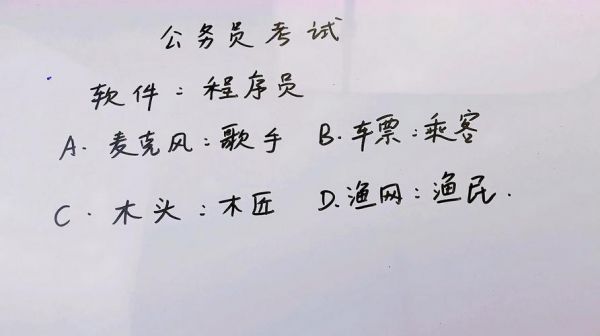 公务员考试
软件:程序员
A. 麦克风:歌手 B.车票:乘客
C. 木头:木匠 D.渔网:渔民.